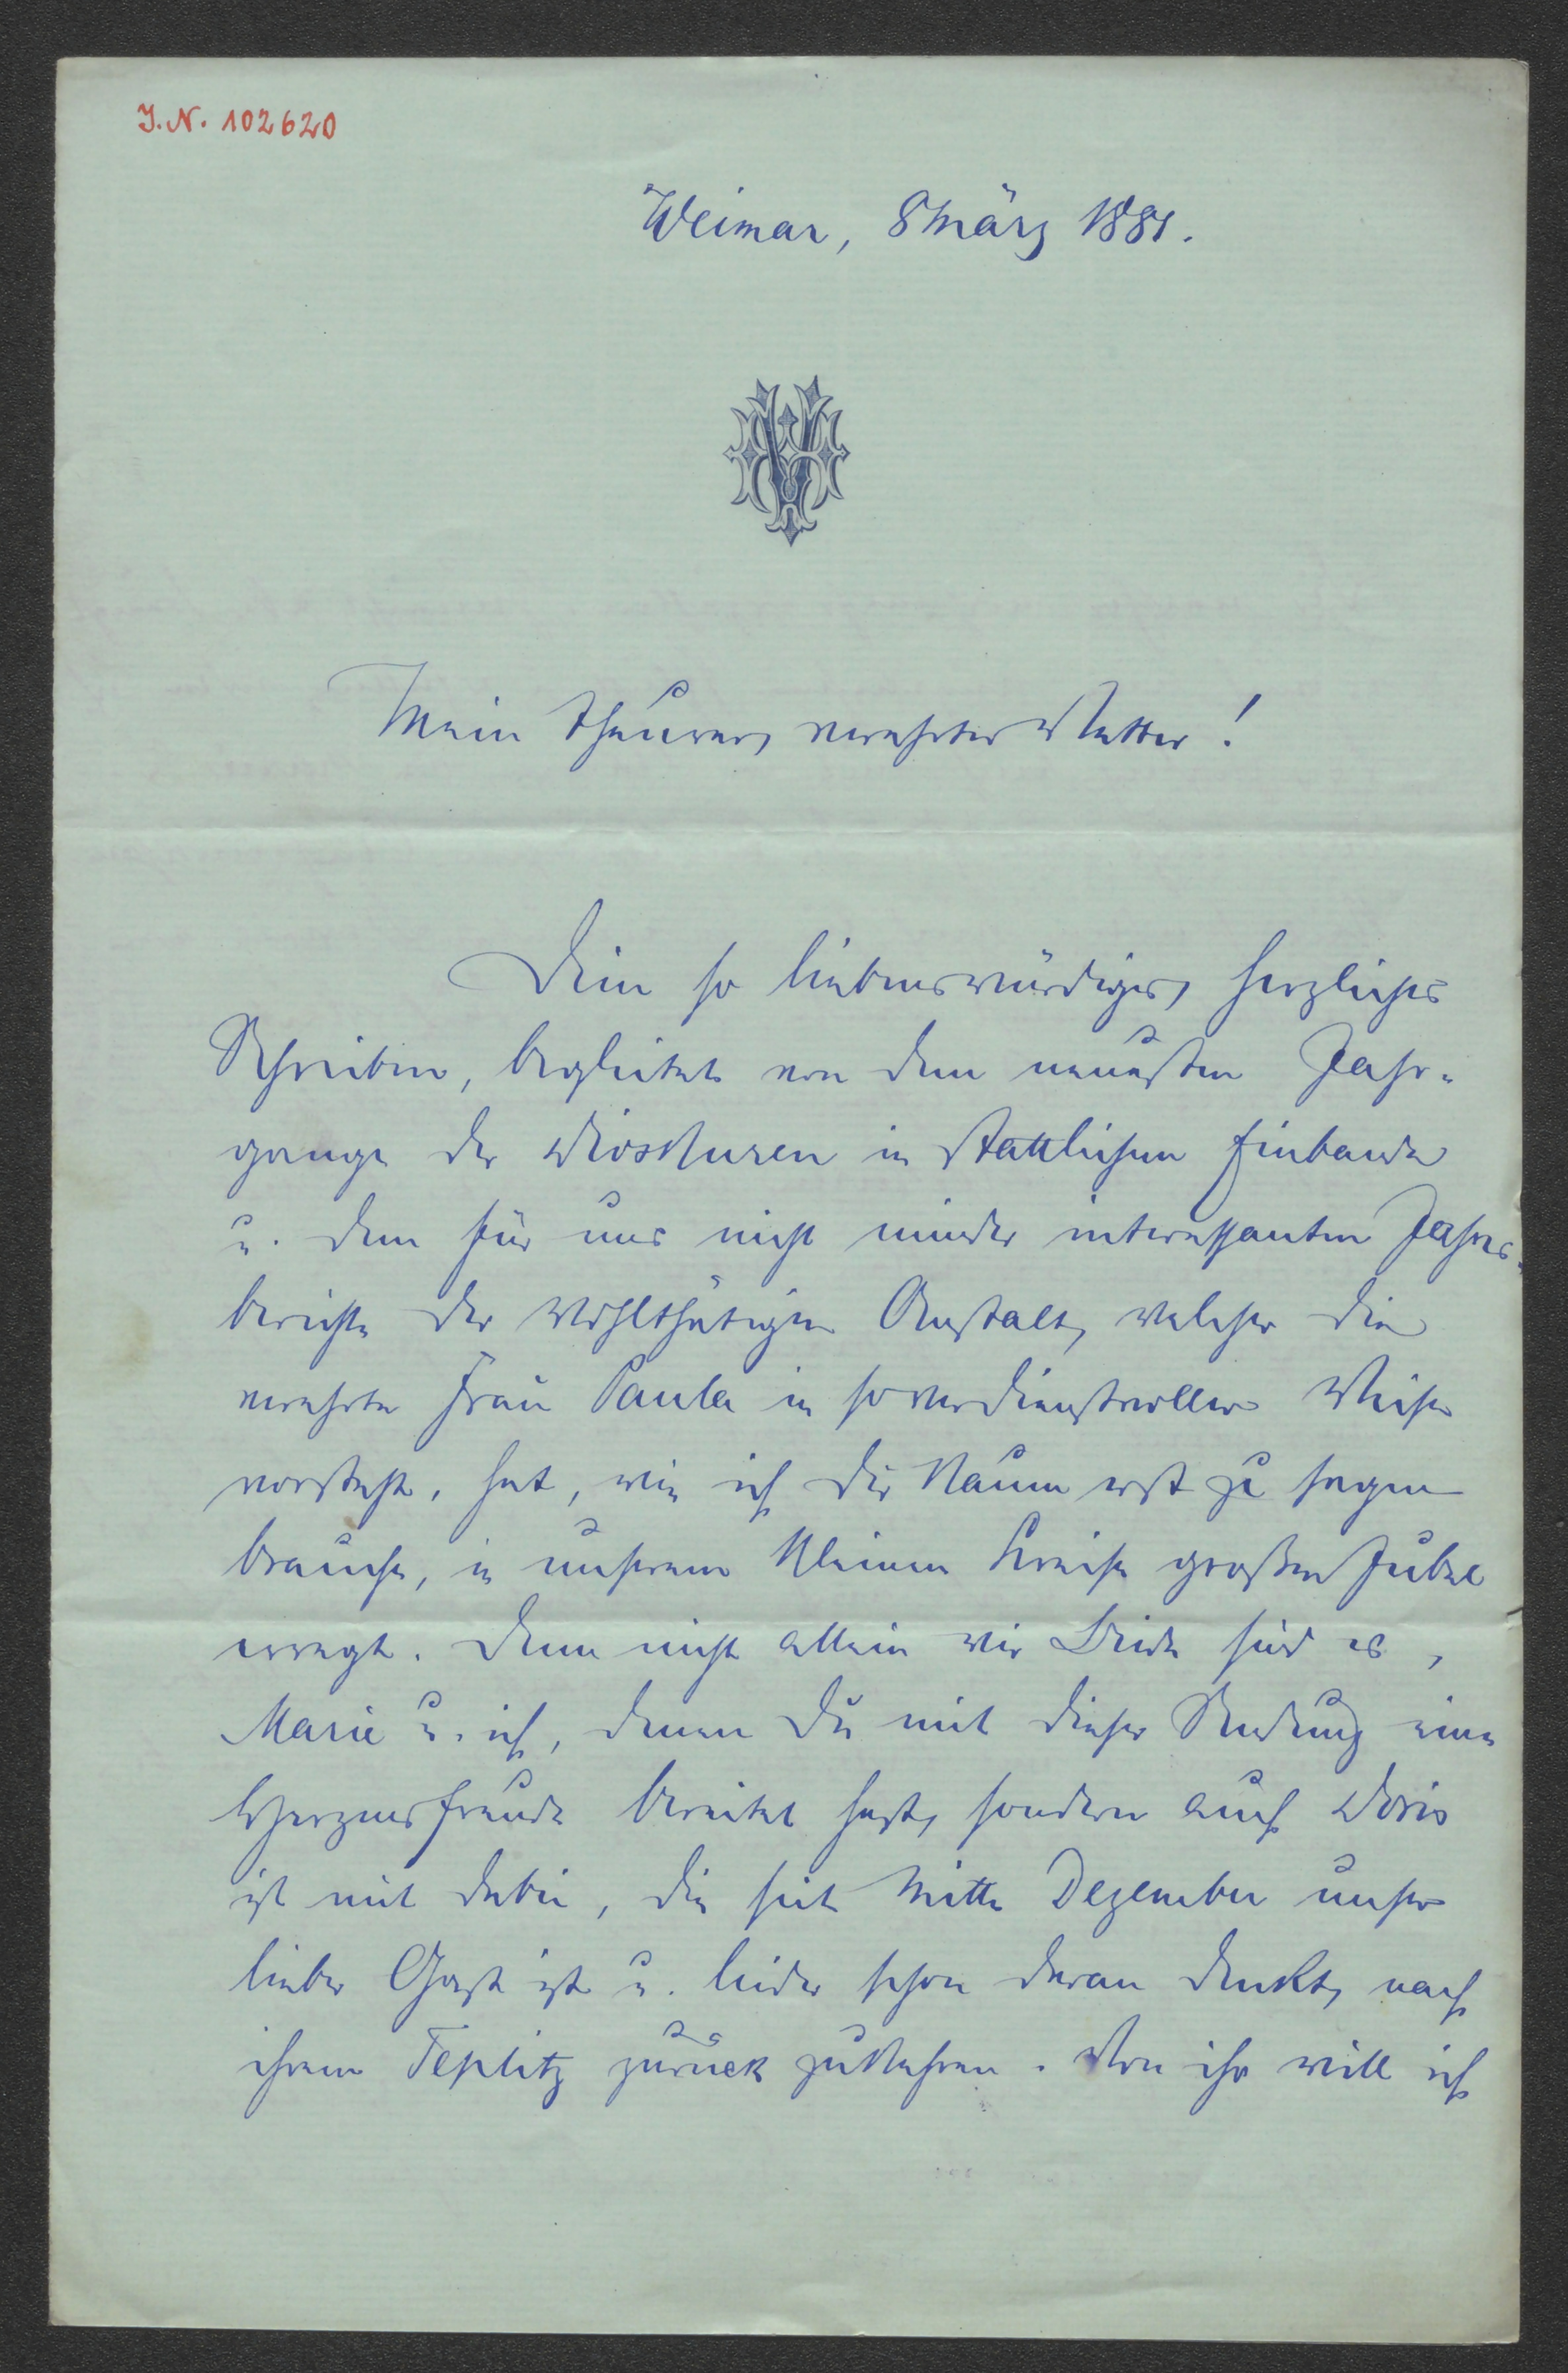 J.N. 102620
Weimar, 8 März 1881.
Mein theurer, verehrter Vetter!
Dein so liebenswürdiges, herzliches
Schreiben, begleitet von dem neuesten Jahr-
gange der Dioskuren in stattlichem Einbande
u. dem für uns nicht minder interessanten Jahres-
berichte der wohlthätigen Anstalt, welcher die
verehrte Frau Paula in so verdienstvoller Weise
vorsteht, hat, wie ich Dir kaum erst zu sagen
brauche, in unserem kleinen Kreise großen Jubel
erregt. Denn nicht allein wir Beide sind es,
Marie u. ich, denen Du mit dieser Sendung eine
Herzensfreude bereitet hast, sondern auch Doris
ist mit dabei, die seit Mitte Dezember unser
lieber Gast ist u. leider schon daran denkt, nach
ihrem Teplitz zurück zukehren. Von ihr will ich